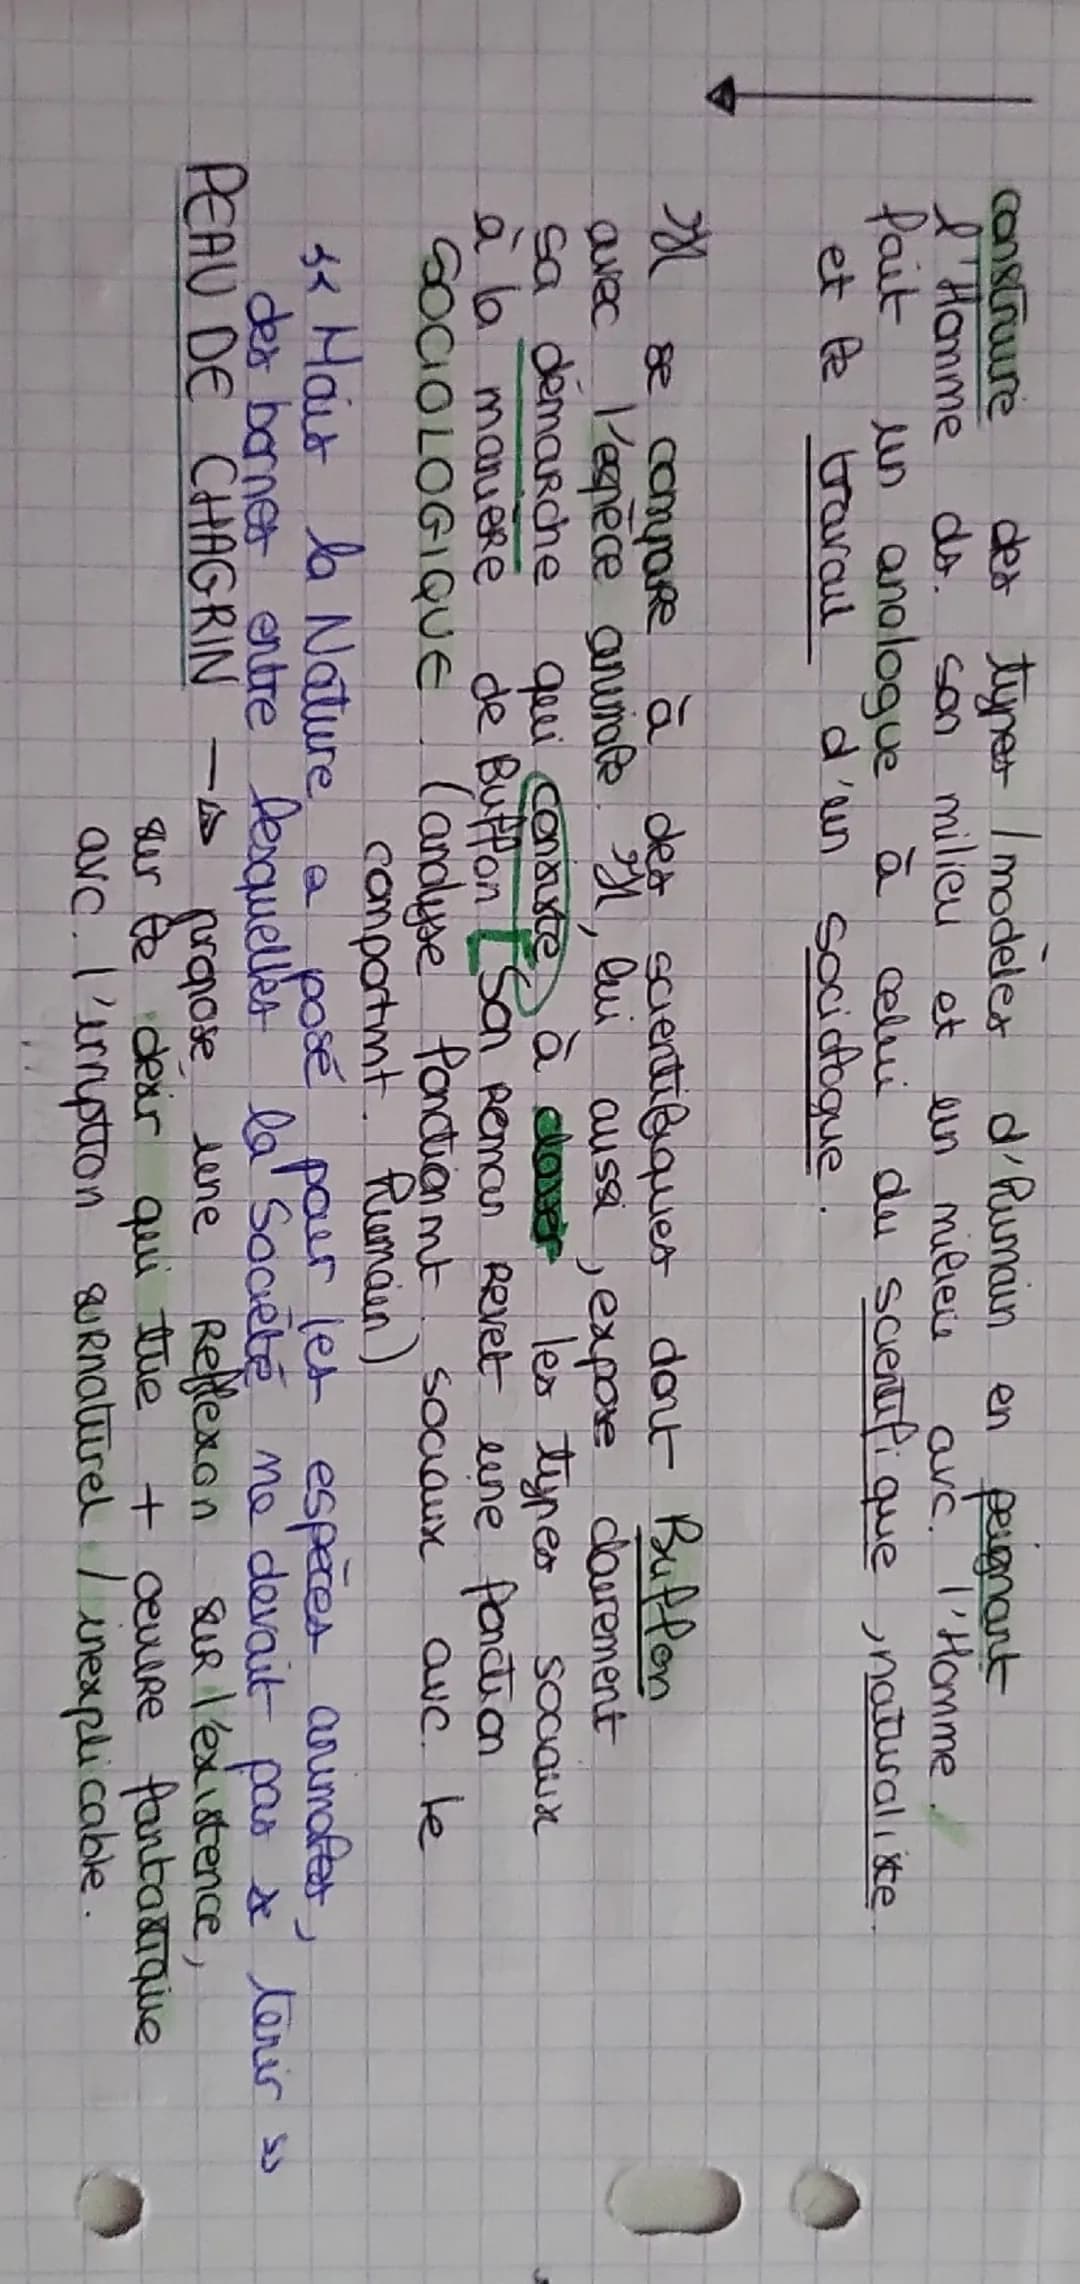 construire des types / modèles d'humain en peignant
l'Homme ds. son milieu et un milieu avc. l'Homme.
fait un analogue à celui du scientifique, naturaliste
et le travail d'un sociologue.
Il se compare à des scientifiques dont Buffon
avec l'espèce animale. Il, lui aussi, expose clairement
sa démarche qui consiste à classer les types sociaux
à la manière de Buffon [Son roman revet une fonction
SOCIOLOGIQUE (analyse fonctionmnt sociaux avc. le
comportmnt. humain)
« Mais la Nature a posé pour les espèces animales,
des bornes entre lesquelles la Société ne devait pas se tenir »
PEAU DE CHAGRIN → propose une Réflexion sur l'existence,
sur le désir qui tue + oeuvre fantastique
avc. l'irruption surnaturel / inexplicable.